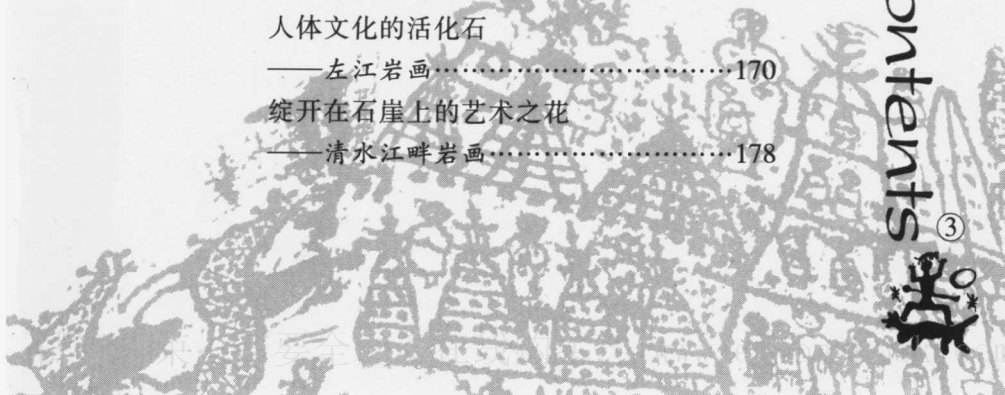 人体文化的活化石
——左江岩画…………………………170
绽开在石崖上的艺术之花
——清水江畔岩画……………………178
ontents
③